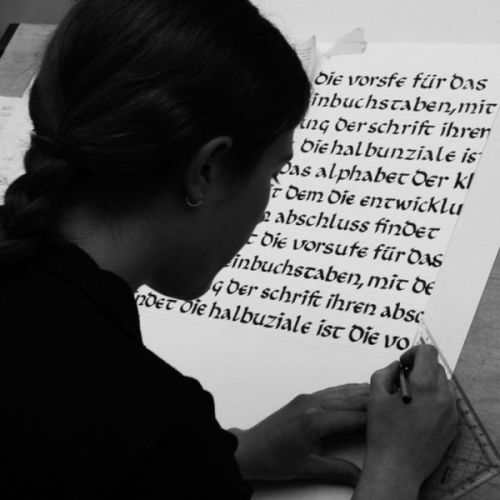 die vorsfe für das
inbuchstaben, mit
ung der schrift ihren
die halbunziale is
das alphabet der kl
t dem die entwicklu
n abschluss findet
t die vorsufe für das
einbuchstaben, mit de
g der schrift ihren absc
ndet die halbuziale ist die vo